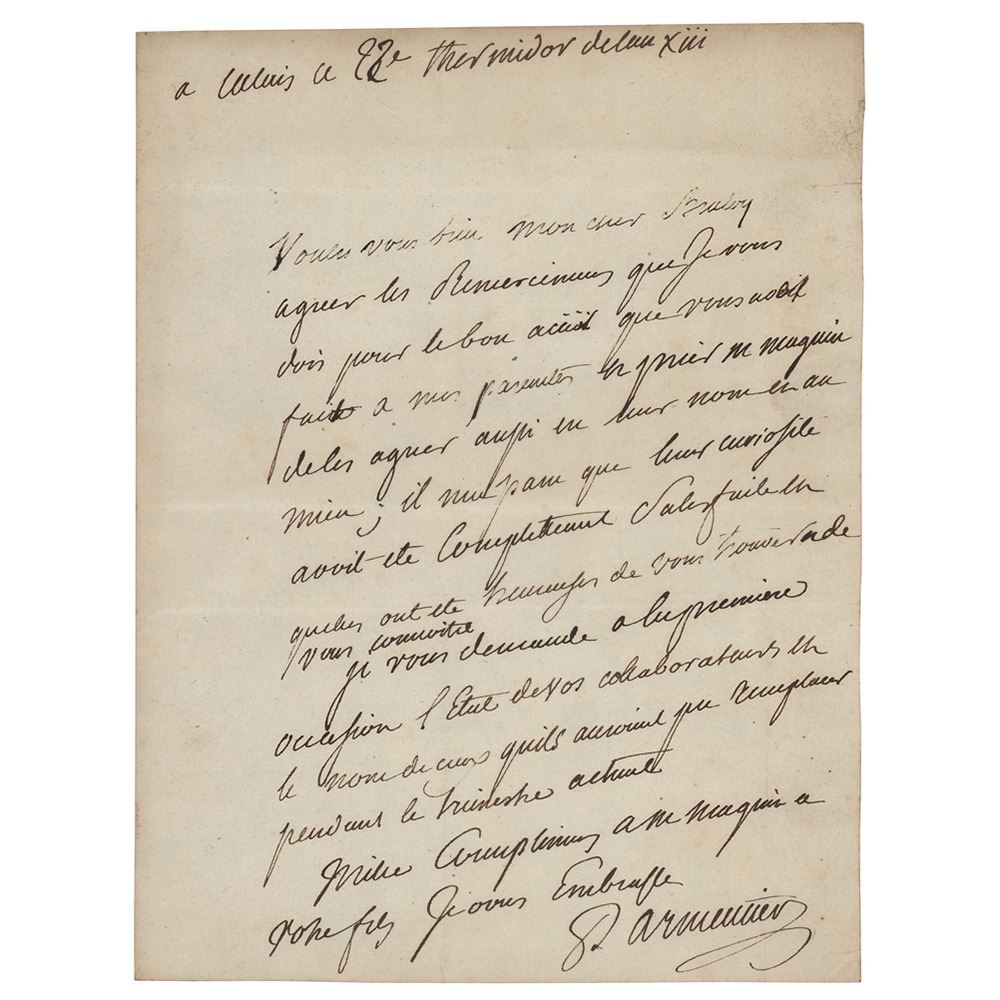 a Calais ce 22e thermidor de lan xiii
Voules vous bien mon cher
agreer les Remerciemens que Je vous
dois pour le bon acüeil que vous avés
fait a mes parentes et prier m maquin
de les agreer aussi en leur nom et au
mien; il me paru que leur curiosité
avoit ete Complettement Satisfaite et
quelles ont ete heureuses de vous trouver et de
vous connoitre
je vous demande a la premiere
occasion l'Etat de vos collaborateurs et
le nom de ceux quils auroient pu remplacer
pendant le trimestre actuel
Mille Complimens a m maquin a
votre fils Je vous Embrasse
Parmentier